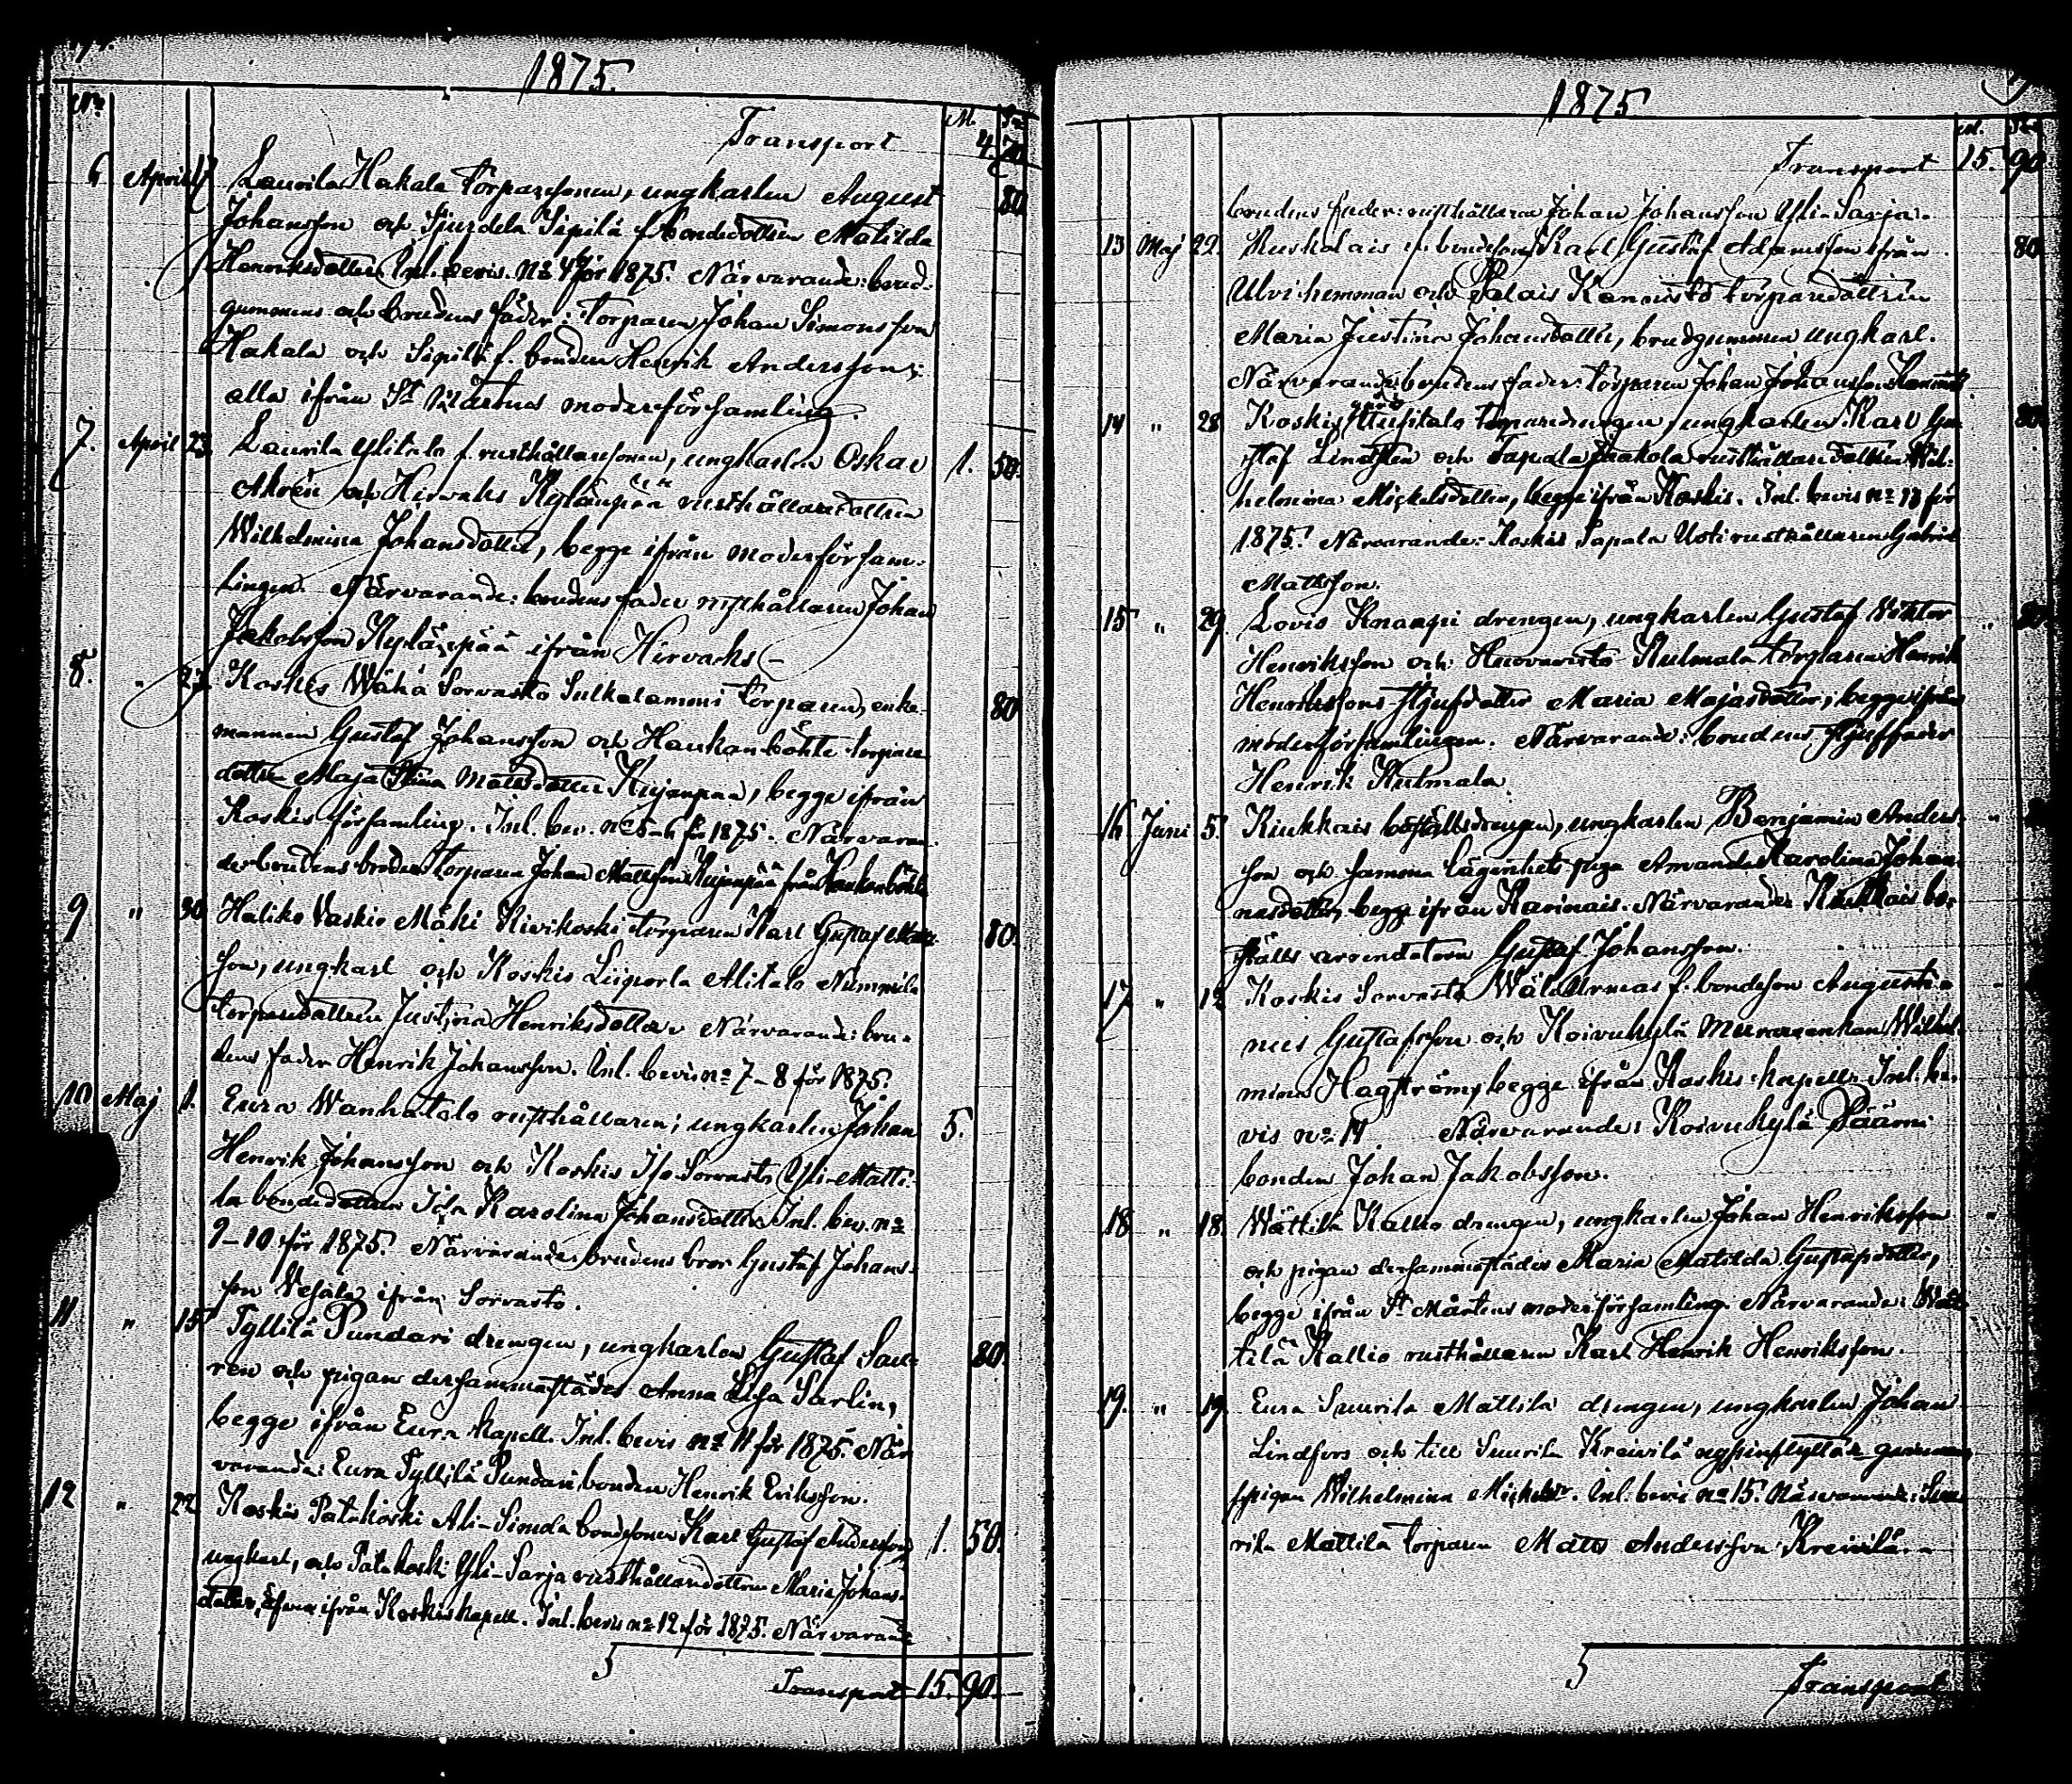 1875.
No M. Pi
Transport 4. 70
6 April 17 Laurila Hakala torparesonen, ungkarlen August 80
Johansson och Sjurdela Sipilä f. bondedottren Matilda
Henriksdotter. Inl. bevis. No 4 för 1875. Närvarande: brud-
gummens och brudens fäder: torparen Johan Simonsson
Hakala och Sipilä f. bonden Henrik Andersson;
alla ifrån St Mårtens moderförsamling
7. April 23. Laurila Ylitalo f. rusthållaresonen, ungkarlen Oskar 1. 50.
Ahrén och Hirvaks Kylänpää rusthållaredottren
Wilhelmina Johansdotter, begge ifrån moderförsam-
lingen. Närvarande: brudens fader rusthållaren Johan
Jakobsson Kylänpää ifrån Hirvaks
8. " 27. Koskis Wähä Sorvasto Sulkalammi torparen, enke- 80
mannen Gustaf Johansson och Haukanböhle torpare
dotter Maja Stina Mattsdotter Kujanpää, begge ifrån
Koskis församling. Inl. bev. no 5-6 för 1875. Närvaran-
de: brudens broder torparen Johan Mattsson Kujanpää från Haukanböhle
9 " 30 Haliko Vaskio Mäki Kivikoski torparen Karl Gustaf Matts- 80.
son, ungkarl och Koskis Liiporla Alitalo Nummila
torparedottren Justina Henriksdotter Närvarande: bru-
dens fader Henrik Johansson. Inl. bevis no 7-8 för 1875.
10 Maj 1. Eura Wanhatalo rusthållaren, ungkarlen Johan 5.
Henrik Johansson och Koskis Iso-Sorvasto Yli-Matti-
la bondedottren Ida Karolina Johansdotter. Inl. bev. no
9-10 för 1875. Närvarande: brudens bror Gustaf Johans-
son Vesala ifrån Sorvasto.
11 " 15 Tyllilä Pundari drengen, ungkarlen Gustaf Sau- 80.
ren och pigan dersammastädes Anna Lisa Sarlin,
begge ifrån Eura kapell. Inl. bevis no 11 för 1875. När
varande: Eura Tyllilä Pundari bonden Henrik Eriksson.
12 " 22 Koskis Patakoski Ali-Simola bondesonen Karl Gustaf Andersson, 1. 50.
ungkarl, och Patakoski Yli-Sarja rusthållaredottren Maria Johans-
dotter, äfven ifrån Koskis kapell. Inl. bevis no 12 för 1875. Närvarande
Transport 15. 90.
1875
M. Pi
Transport 15. 90
brudens fader: rusthållaren Johan Johansson Yli-Sarja.
13 Maj 22. Ruskolais f. bondesonen Karl Gustaf Adamsson ifrån 80
Ulvi hemman och Palais Kannisto torparedottren
Maria Justina Johansdotter, brudgummen ungkarl.
Närvarande: brudens fader torparen Johan Johansson Kannisto
14 " 28 Koskis Uusitalo torparedrengen, ungkarlen Karl Gu- 80.
staf Lindsten och Tapala Jaakola rusthållaredottren Wil-
helmina Mickelsdotter, begge ifrån Koskis. Inl. bevis no 13 för
1875. Närvarande: Koskis Tapala Uoti rusthållaren Gabriel
Mattsson.
15 " 29. Lovis Knaapi drengen, ungkarlen Gustaf Viktor " 80.
Henriksson och Huovaristo Kulmala torparen Henrik
Henrikssons styfdotter Maria Majasdotter, begge ifrån
moderförsamlingen. Närvarande: brudens styffader
Henrik Kulmala.
16 Juni 5. Kiukkais boställsdrengen, ungkarlen Benjamin Anders- "
son och samma lägenhets piga Amanda Karolina Johan-
nesdotter, begge ifrån Karinais. Närvarande: Kiukkais bo-
ställs arrendatorn Gustaf Johansson.
17 " 12 Koskis Sorvasto Wälä Urmas f. bondeson Augusti-
nus Gustafsson och Koivukylä Murarenkan Wilhel-
mina Hagström, begge ifrån Koskis kapell. Inl. be-
vis no 14 Närvarande: Koivukylä Päärni
bonden Johan Jakobsson.
18 " 18. Wättilä Kallio drengen, ungkarlen Johan Henriksson "
och pigan dersammastädes Maria Matilda Gustafsdotter,
begge ifrån St Mårtens moderförsamling. Närvarande: Wät-
tilä Kallio rusthållaren Karl Henrik Henriksson.
19. " 19. Eura Suurila Mattila drengen, ungkarlen Johan
Lindfors och till Suurila Kreivilä nyss inflyttade
pigan Wilhelmina Mickelsdr. Inl. bevis no 15. Närvarande: Suu-
rila Mattila torparen Matts Andersson Kreivilä.
Transport